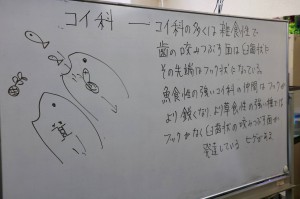 コイ科 ― コイ科の多くは雑食性で
歯の咬みつぶす面は臼歯状に
その先端はフック状になっている。
魚食性の強いコイ科の仲間はフックが
より鋭くなり より草食性の強い種では
フックがなく臼歯状の咬みつぶす面が
発達している